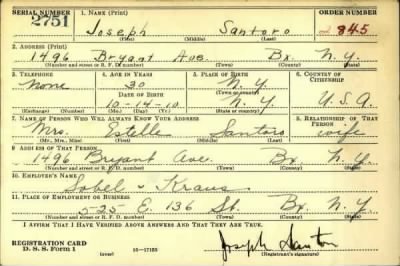 SERIAL NUMBER 1. NAME (Print) ORDER NUMBER
2751 Joseph Santoro 845
(First) (Middle) (Last)
2. ADDRESS (Print)
1496 Bryant Ave Bx. N.Y.
(Number and street or R. F. D. number) (Town) (County) (State)
3. TELEPHONE 4. AGE IN YEARS 5. PLACE OF BIRTH 6. COUNTRY OF CITIZENSHIP
None 30 N.Y.
DATE OF BIRTH
10-14-10 N.Y. U.S.A
(Exchange) (Number) (Mo.) (Day) (Yr.) (State or country)
7. NAME OF PERSON WHO WILL ALWAYS KNOW YOUR ADDRESS 8. RELATIONSHIP OF THAT PERSON
Mrs. Estelle Santoro wife
(Mr., Mrs., Miss) (First) (Middle) (Last)
9. ADDRESS OF THAT PERSON
1496 Bryant Ave. Bx. N.Y.
(Number and street or R. F. D. number) (Town) (County) (State)
10. EMPLOYER'S NAME
Sobel - Kraus
11. PLACE OF EMPLOYMENT OR BUSINESS
525 E. 136 St. Bx. N.Y.
(Number and street or R. F. D. number) (Town) (County) (State)
I AFFIRM THAT I HAVE VERIFIED ABOVE ANSWERS AND THAT THEY ARE TRUE.
REGISTRATION CARD
D. S. S. Form 1 (over) 16-17105 Joseph Santoro
(Registrant's signature)